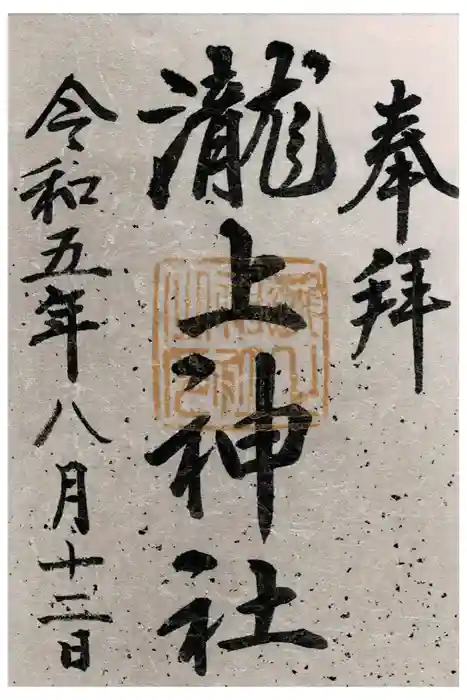 奉拝
瀧上神社
令和五年八月十二日